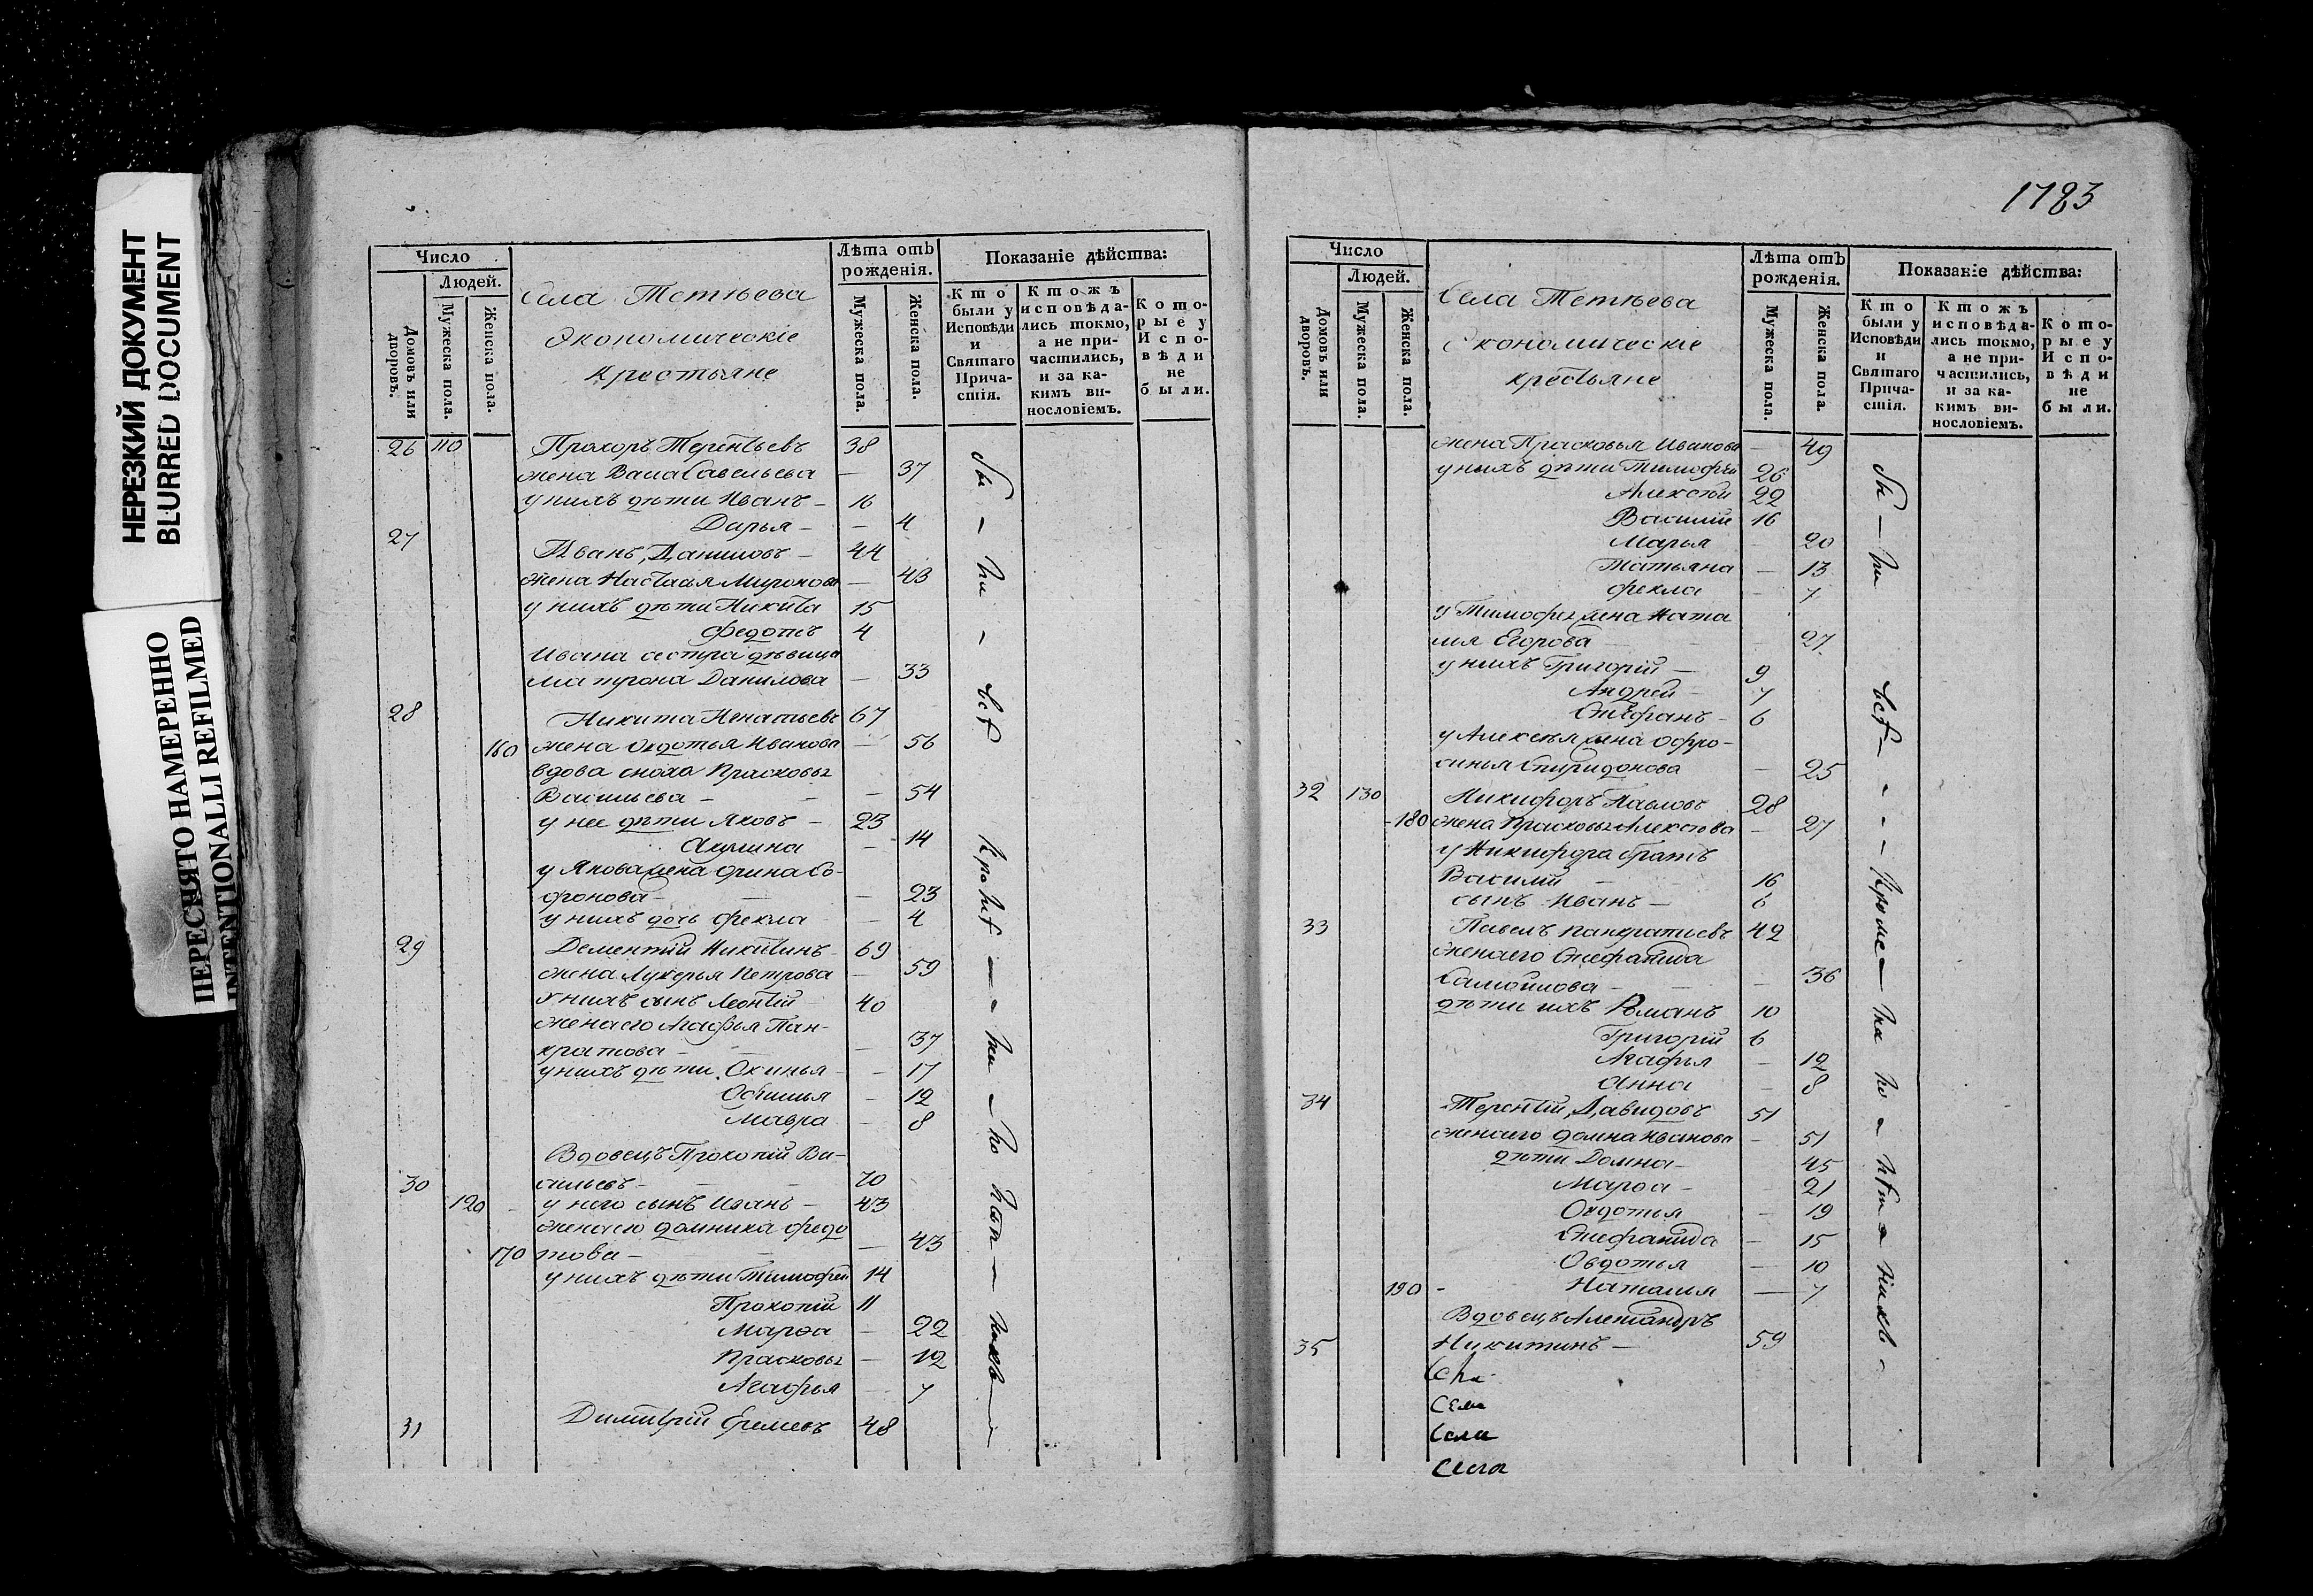 НЕРЕЗКИЙ ДОКУМЕНТ
BLURRED DOCUMENT
ПЕРЕСНЯТО НАМЕРЕННО
INTENTIONALLI REFILMED
Число
Людей.
Домовъ или дворовъ.
Мужеска пола.
Женска пола.
Села Тетѣева
Экономическіе
крестьяне
Лѣта отъ рожденія.
Мужеска пола.
Женска пола.
Показаніе дѣйства:
Кто были у Исповѣди и Святаго Причастія.
Ктожъ исповѣдались токмо, а не причастились, и за какимъ винословіемъ.
Которые у Исповѣди не были.
26 110 Прохоръ Терентьевъ 38
жена Васа Савельева — 37
у нихъ дѣти Иванъ — 16
Дарья — — 4
27 Иванъ Даниловъ — 44
жена Настасья Миронова — 43
у нихъ дѣти Никита 15
Федотъ 4
Ивана сестра дѣвица
Матрона Данилова — 33
28 Никита Игнатьевъ 67
160 жена Овдотья Иванова — 56
вдова сноха Прасковья
Васильева — — — 54
у нее дѣти Яковъ — 23
Акулина — 14
у Якова жена Орина Со-
фонова — — 23
у нихъ дочь Фекла — 4
29 Дементій Никитинъ 69
жена Лукерья Петрова — 59
у нихъ сынъ Леонтій 40
жена его Агафья Пан-
кратова — — 37
у нихъ дѣти Оксинья — — 17
Офимья — 12
Мавра — 8
Вдовецъ Прокопій Ва-
30 сильевъ — — 70
120 у него сынъ Иванъ — 43
жена его Домника Федо
170 това — — 43
у нихъ дѣти Тимофей 14
Прокопій 11
Марѳа — 22
Прасковья — 12
Агафья — 7
31 Димитрій Еремеевъ 48
1783
Число
Людей.
Домовъ или дворовъ.
Мужеска пола.
Женска пола.
Села Тетѣева
Экономическіе
крестьяне
Лѣта отъ рожденія.
Мужеска пола.
Женска пола.
Показаніе дѣйства:
Кто были у Исповѣди и Святаго Причастія.
Ктожъ исповѣдались токмо, а не причастились, и за какимъ винословіемъ.
Которые у Исповѣди не были.
жена Прасковья Иванова — 49
у нихъ дѣти Тимофей 26
Алексѣй 22
Василій 16
Марья — 20
Татьяна — 13
Фекла — 7
у Тимофея жена Ната
лія Егорова — — 27
у нихъ Григорій — 9
Андрей — 7
Стефанъ — 6
у Алексѣя жена Офро-
синья Спиридонова — 25
32 130 Никифоръ Павловъ 28
180 жена Прасковья Алексѣева — 27
у Никифора братъ
Василій — 16
сынъ Иванъ — 6
33 Павелъ Панкратьевъ 42
жена его Стефанида
Самойлова — — 36
дѣти ихъ Романъ 10
Григорій 6
Агафья — 12
Анна — 8
34 Терентій Давидовъ 51
жена его Домна Иванова — 51
дѣти Домна — 45
Марѳа — 21
Овдотья — 19
Стефанида — 15
Овдотья — 10
190 — Наталия — 7
Вдовецъ Александръ
35 Никитинъ — 59
Села
Села
Села